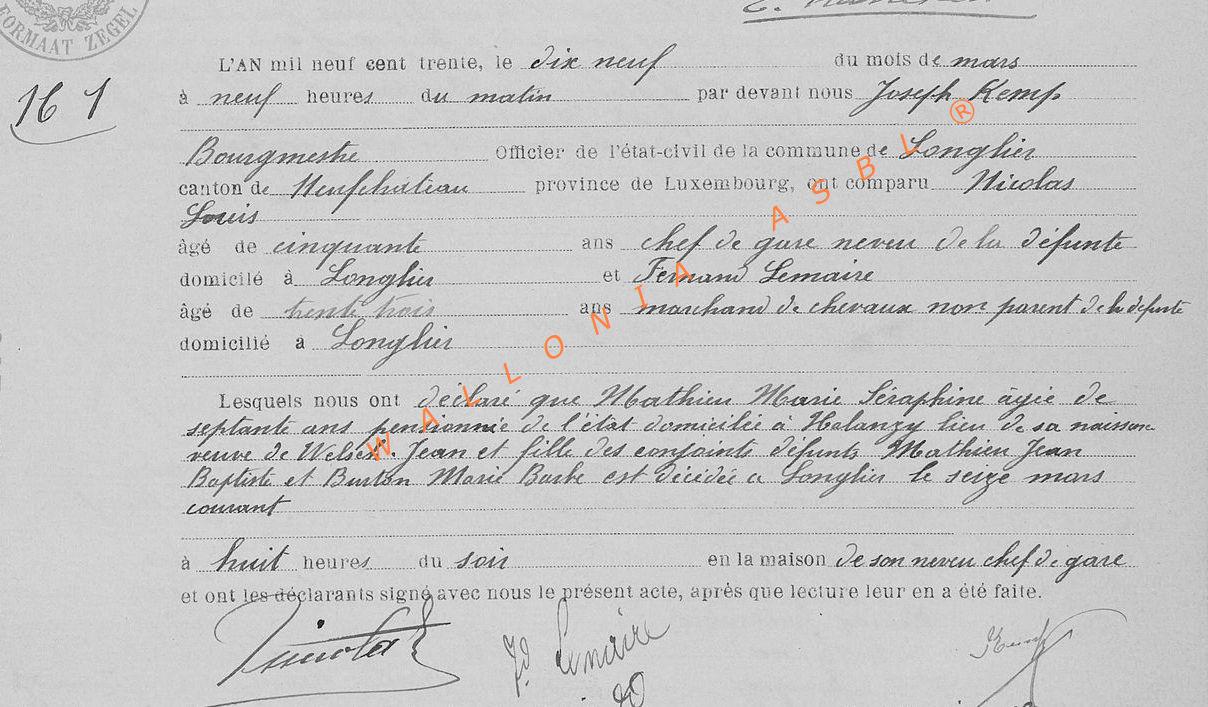 FORMAAT ZEGEL
L'AN mil neuf cent trente, le dix neuf du mois de mars
16 1
à neuf heures du matin par devant nous Joseph Kemp
Bourgmestre Officier de l'état-civil de la commune de Longlier
canton de Neufchateau province de Luxembourg, ont comparu Nicolas
Louis
âgé de cinquante ans chef de gare neveu de la défunte
domicilé à Longlier et Fernand Lemaire
âgé de trente trois ans marchand de chevaux non parent de la défunte
domicilié a Longlier
Lesquels nous ont déclaré que Mathieu Marie Séraphine âgée de
septante ans pensionnée de l'état domiciliée à Halanzy lieu de sa naissance
veuve de Jean et fille des conjoints défunts Mathieu Jean
Baptiste et Burton Marie Barbe est décédée a Longlier le seize mars
courant
à huit heures du soir en la maison de son neveu chef de gare
et ont les déclarants signé avec nous le présent acte, après que lecture leur en a été faite.
Fd Lemaire
Kemp
WALLONIA ASBL ®